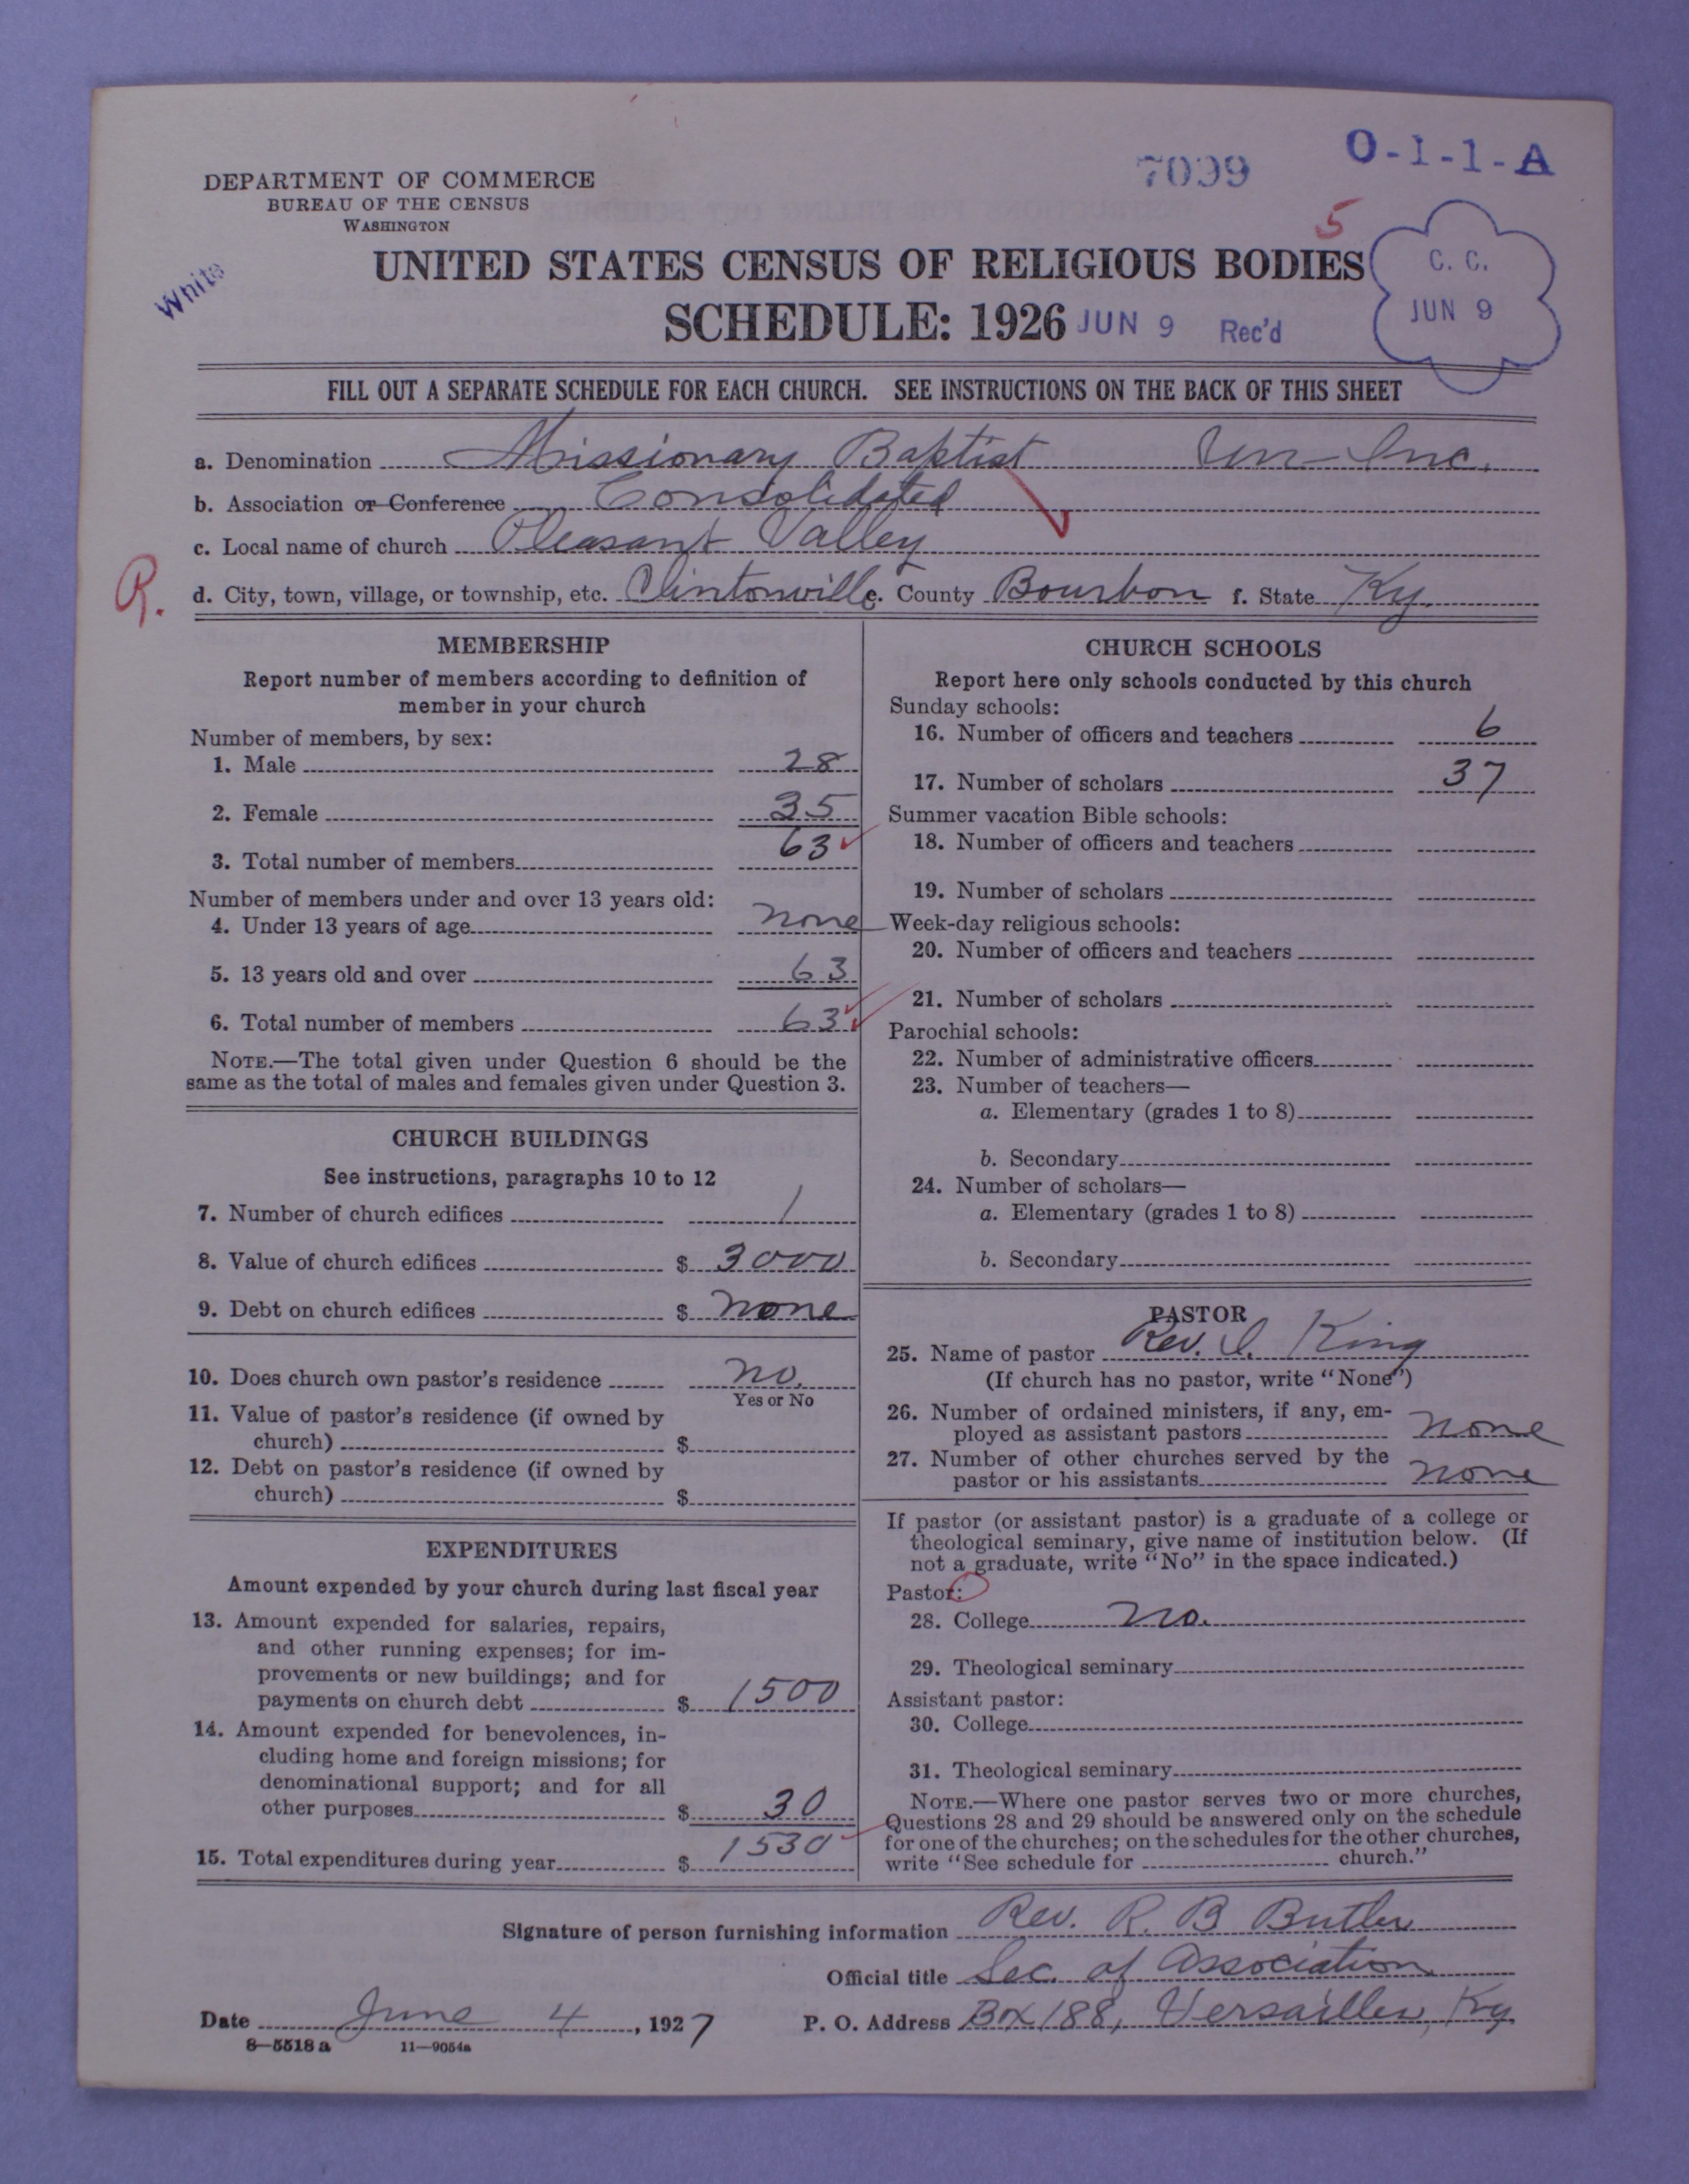 7099
O-1-1-A
DEPARTMENT OF COMMERCE
BUREAU OF THE CENSUS
WASHINGTON
5
White
UNITED STATES CENSUS OF RELIGIOUS BODIES
C. C.
JUN 9
SCHEDULE: 1926 JUN 9 Rec'd
FILL OUT A SEPARATE SCHEDULE FOR EACH CHURCH. SEE INSTRUCTIONS ON THE BACK OF THIS SHEET
a. Denomination Missionary Baptist Un-Inc.
b. Association or Conference Consolidated
c. Local name of church Pleasant Valley
R.
d. City, town, village, or township, etc. Clintonville e. County Bourbon f. State Ky.
MEMBERSHIP
Report number of members according to definition of
member in your church
Number of members, by sex:
1. Male 28
2. Female 35
3. Total number of members 63
Number of members under and over 13 years old:
4. Under 13 years of age none
5. 13 years old and over 63
6. Total number of members 63
NOTE.—The total given under Question 6 should be the
same as the total of males and females given under Question 3.
CHURCH BUILDINGS
See instructions, paragraphs 10 to 12
7. Number of church edifices 1
8. Value of church edifices $ 3000
9. Debt on church edifices $ none
10. Does church own pastor's residence no.
Yes or No
11. Value of pastor's residence (if owned by
church) $
12. Debt on pastor's residence (if owned by
church) $
EXPENDITURES
Amount expended by your church during last fiscal year
13. Amount expended for salaries, repairs,
and other running expenses; for im-
provements or new buildings; and for
payments on church debt $ 1500
14. Amount expended for benevolences, in-
cluding home and foreign missions; for
denominational support; and for all
other purposes $ 30
15. Total expenditures during year $ 1530
CHURCH SCHOOLS
Report here only schools conducted by this church
Sunday schools:
16. Number of officers and teachers 6
17. Number of scholars 37
Summer vacation Bible schools:
18. Number of officers and teachers
19. Number of scholars
Week-day religious schools:
20. Number of officers and teachers
21. Number of scholars
Parochial schools:
22. Number of administrative officers
23. Number of teachers—
a. Elementary (grades 1 to 8)
b. Secondary
24. Number of scholars—
a. Elementary (grades 1 to 8)
b. Secondary
PASTOR
25. Name of pastor Rev. I. King
(If church has no pastor, write "None")
26. Number of ordained ministers, if any, em-
ployed as assistant pastors none
27. Number of other churches served by the
pastor or his assistants none
If pastor (or assistant pastor) is a graduate of a college or
theological seminary, give name of institution below. (If
not a graduate, write "No" in the space indicated.)
Pastor:
28. College no.
29. Theological seminary
Assistant pastor:
30. College
31. Theological seminary
NOTE.—Where one pastor serves two or more churches,
Questions 28 and 29 should be answered only on the schedule
for one of the churches; on the schedules for the other churches,
write "See schedule for church."
Signature of person furnishing information Rev. R. B Butler
Official title Sec. of Association
Date June 4, 1927 P. O. Address Box 188, Versailles, Ky.
8—5518 a 11—9054a